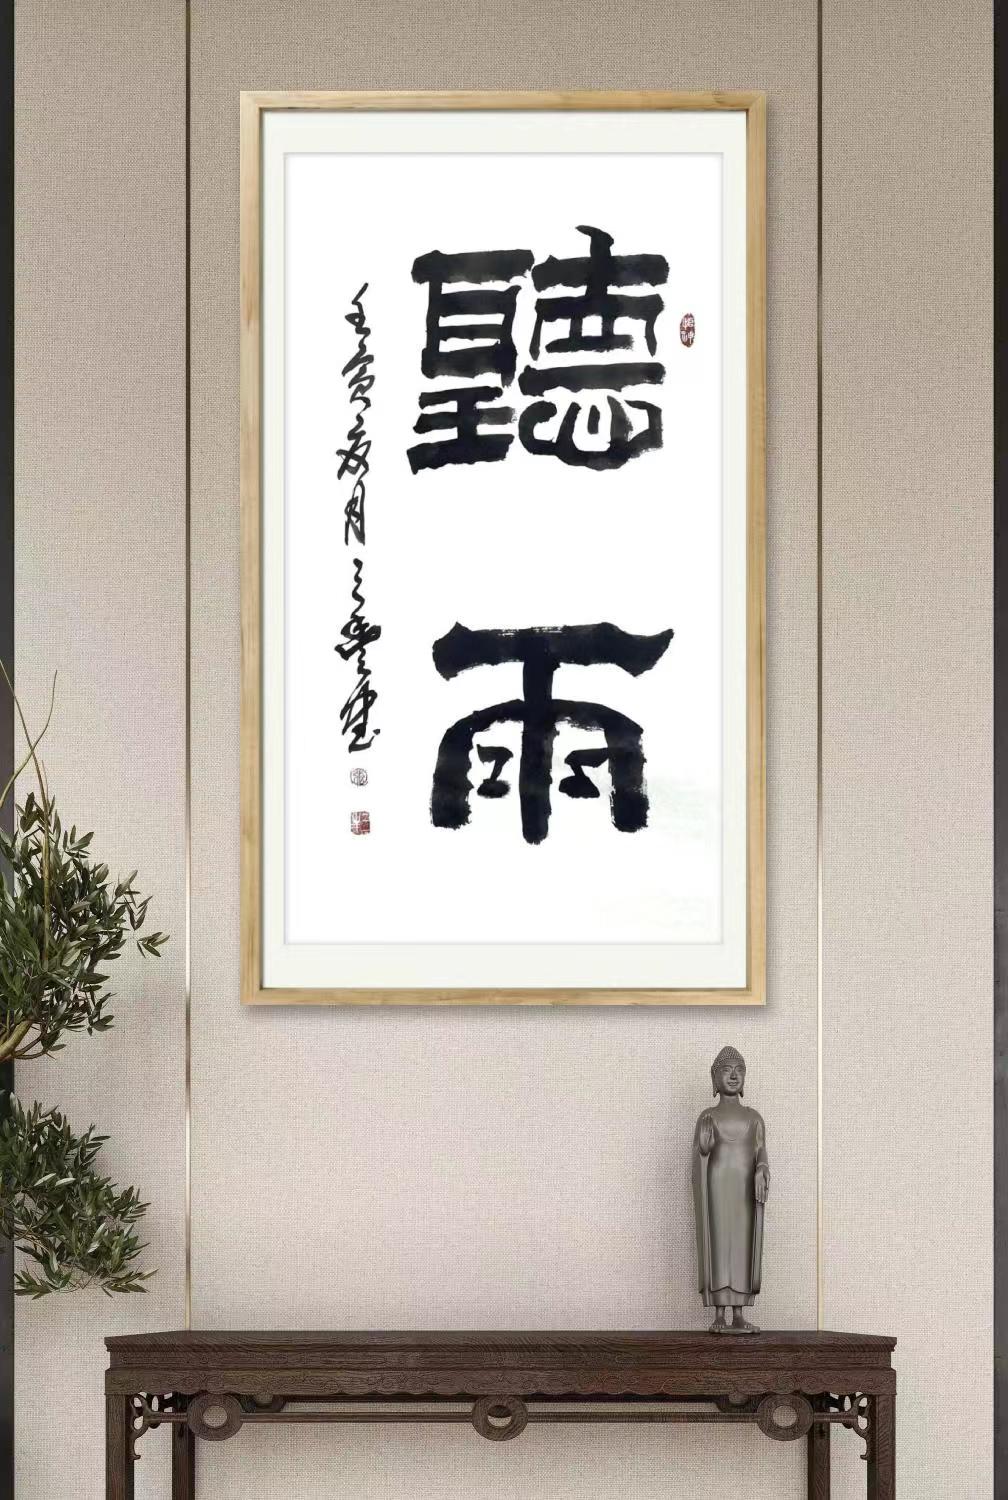 聽雨
壬寅夏月三